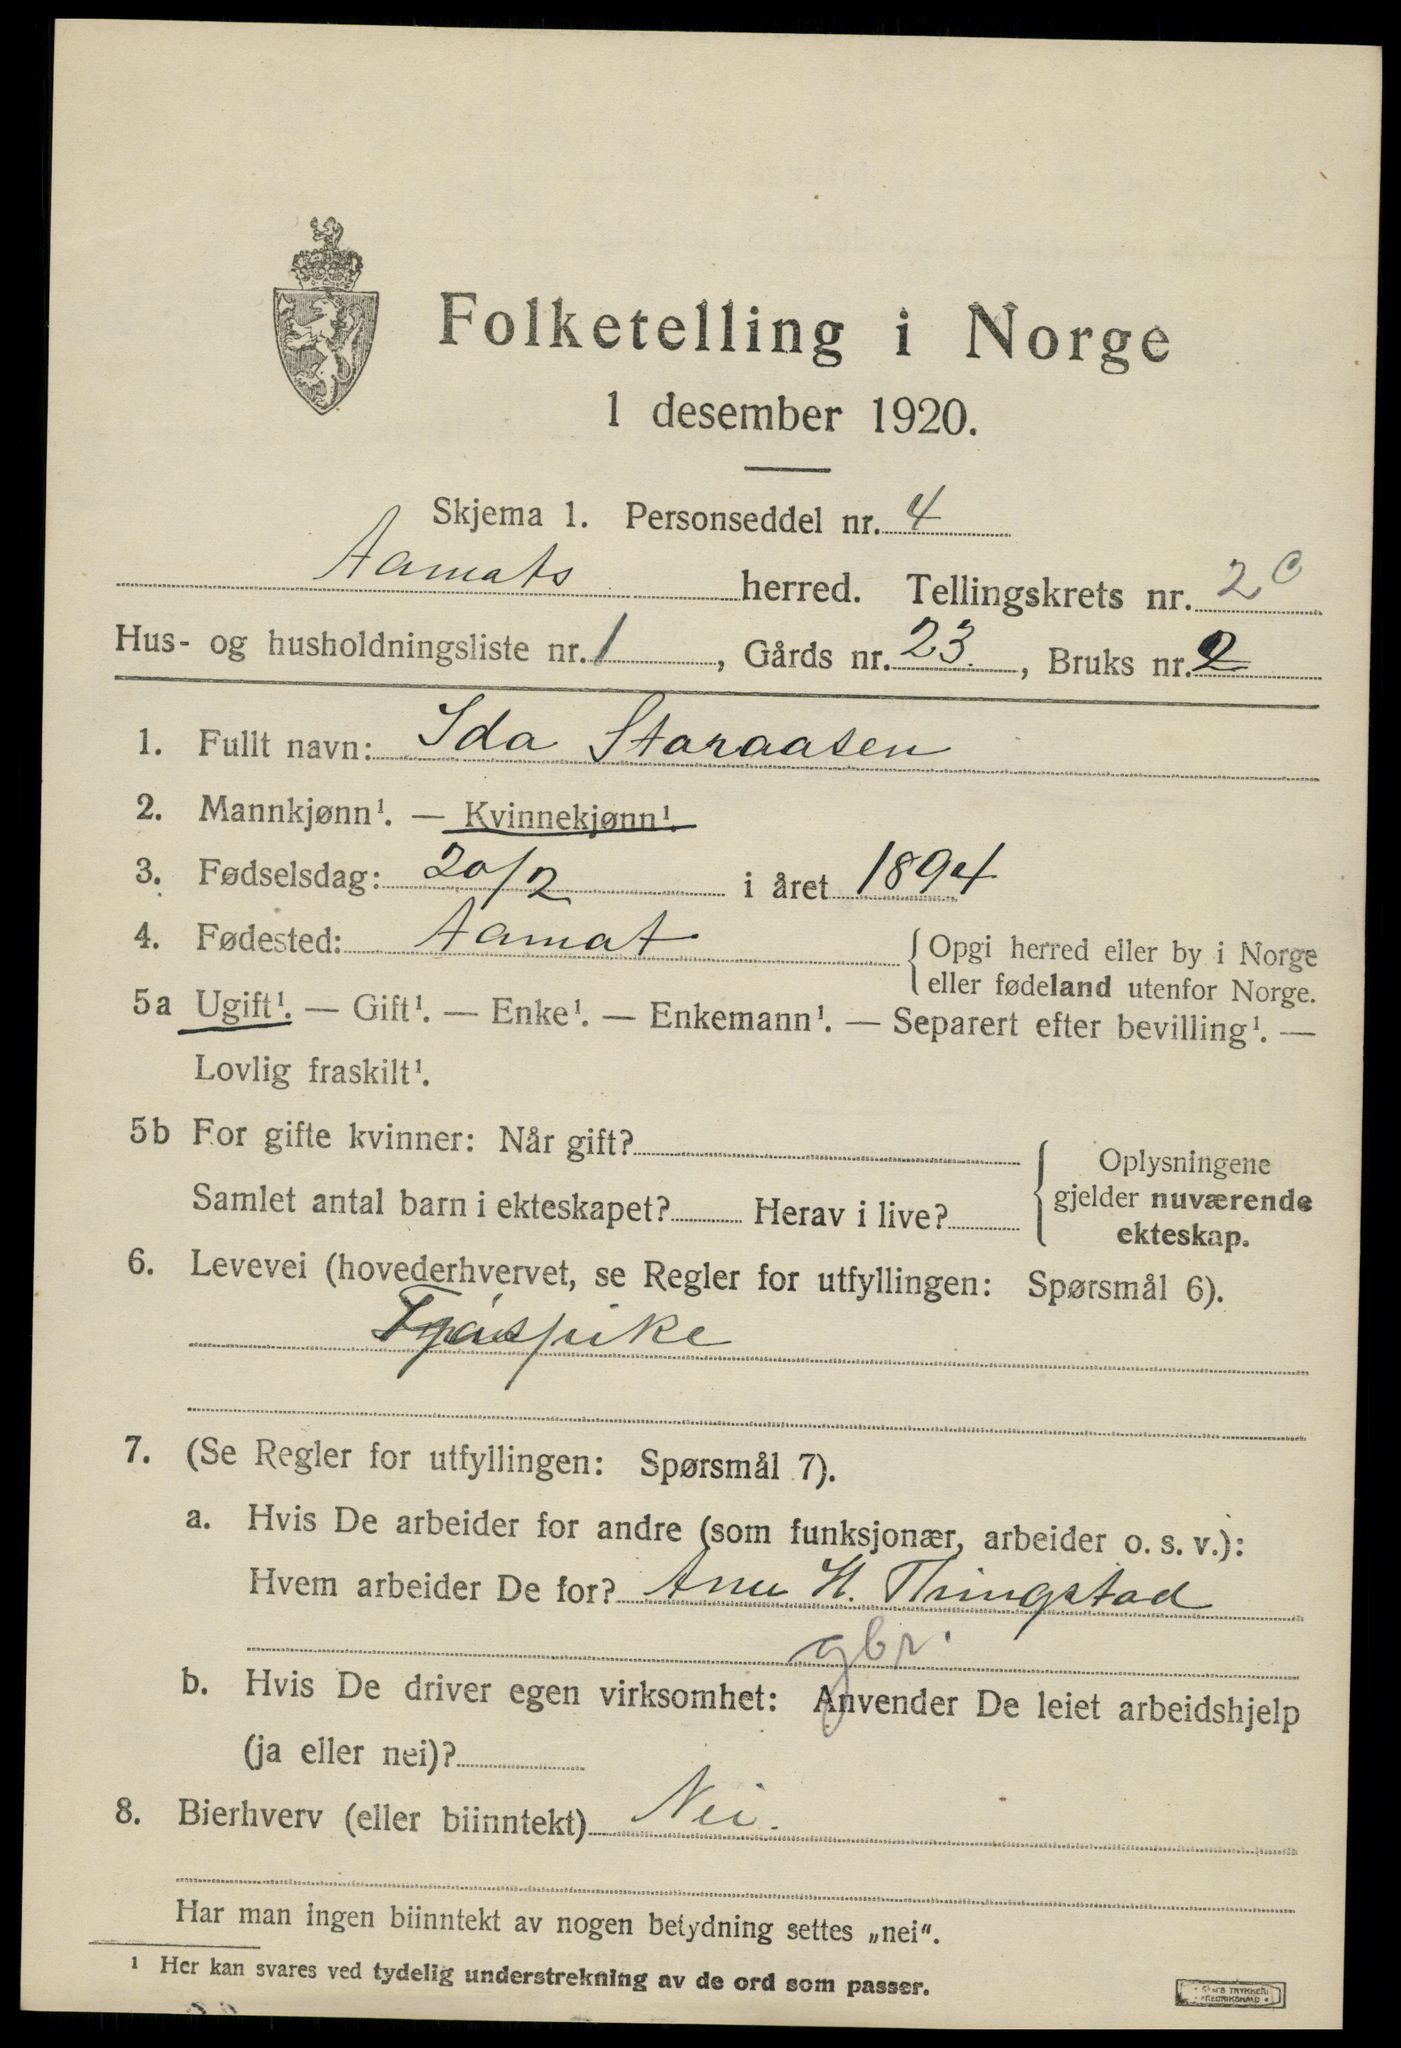 Folketelling i Norge
1 desember 1920.
Skjema 1. Personseddel nr. 4
Aamots herred. Tellingskrets nr. 2 c
Hus- og husholdningsliste nr. 1, Gårds nr. 23, Bruks nr. 2
1. Fullt navn: Ida Storaasen
2. Mannkjønn¹. — Kvinnekjønn¹.
3. Fødselsdag: 20/2 i året 1894
4. Fødested: Aamot { Opgi herred eller by i Norge
eller fødeland utenfor Norge.
5a Ugift¹. — Gift¹. — Enke¹. — Enkemann¹. — Separert efter bevilling¹. —
Lovlig fraskilt¹.
5b For gifte kvinner: Når gift?
Samlet antal barn i ekteskapet? Herav i live?
{ Oplysningene
gjelder nuværende
ekteskap.
6. Levevei (hovederhvervet, se Regler for utfyllingen: Spørsmål 6).
7. (Se Regler for utfyllingen: Spørsmål 7).
a. Hvis De arbeider for andre (som funksjonær, arbeider o. s. v.):
Hvem arbeider De for? H. Thingstad
gbr.
b. Hvis De driver egen virksomhet: Anvender De leiet arbeidshjelp
(ja eller nei)?
8. Bierhverv (eller biinntekt) Nei.
Har man ingen biinntekt av nogen betydning settes „nei“.
¹ Her kan svares ved tydelig understrekning av de ord som passer.